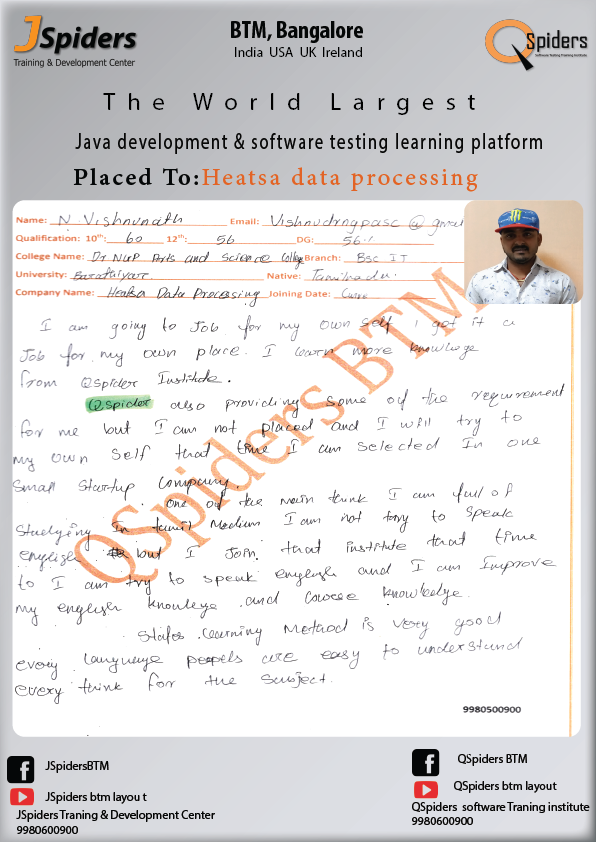 JSpiders
Training & Development Center
BTM, Bangalore
India USA UK Ireland
QSpiders
Software Testing Training Institute
The World Largest
Java development & software testing learning platform
Placed To:Heatsa data processing
Name: N. Vishnunath Email: @ gmai
Qualification: 10th: 60 12th: 56 DG: 56.1.
College Name: Dr NGP Arts and Science College Branch: Bsc IT
University: Barathiyar Native: Tamilnadu.
Company Name: Heatsa Data Processing Joining Date:
I am going to Job for my own self I got it a
Job for my own place. I learn more knowlege
from Qspider Institute.
Qspider also providing some of the requirement
for me but I am not placed and I will try to
my own self that time I am selected In one
small startup company.
one of the main think I am full of
studying In tamil medium I am not try to speak
english but I Join that institute that time
to I am try to speak english and I am Improve
my english knowlege and Course knowledge.
Stafes learning Method is very good
every language peopels are easy to understand
every think for the subject.
QSpiders BTM
9980500900
JSpidersBTM
JSpiders btm layou t
JSpiders Traning & Development Center
9980600900
QSpiders BTM
QSpiders btm layout
QSpiders software Traning institute
9980600900